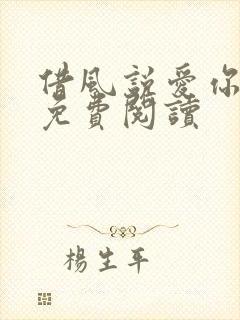 借風說愛你
免費閱讀
楊生平